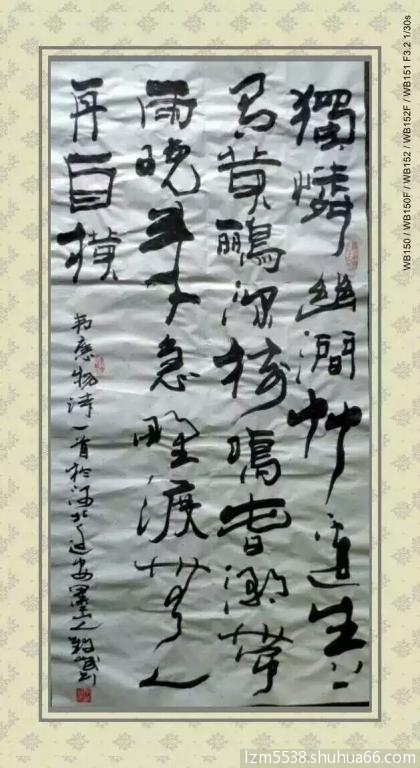 獨憐幽澗艸邊生上
有黃鸝深樹鳴春潮帶
雨晚來急野渡無人
舟自橫
韦應物诗一首於河北迁安
WB150 / WB150F / WB152 / WB152F / WB151 F3.2 1/30s
lzm5538.shuhua66.com